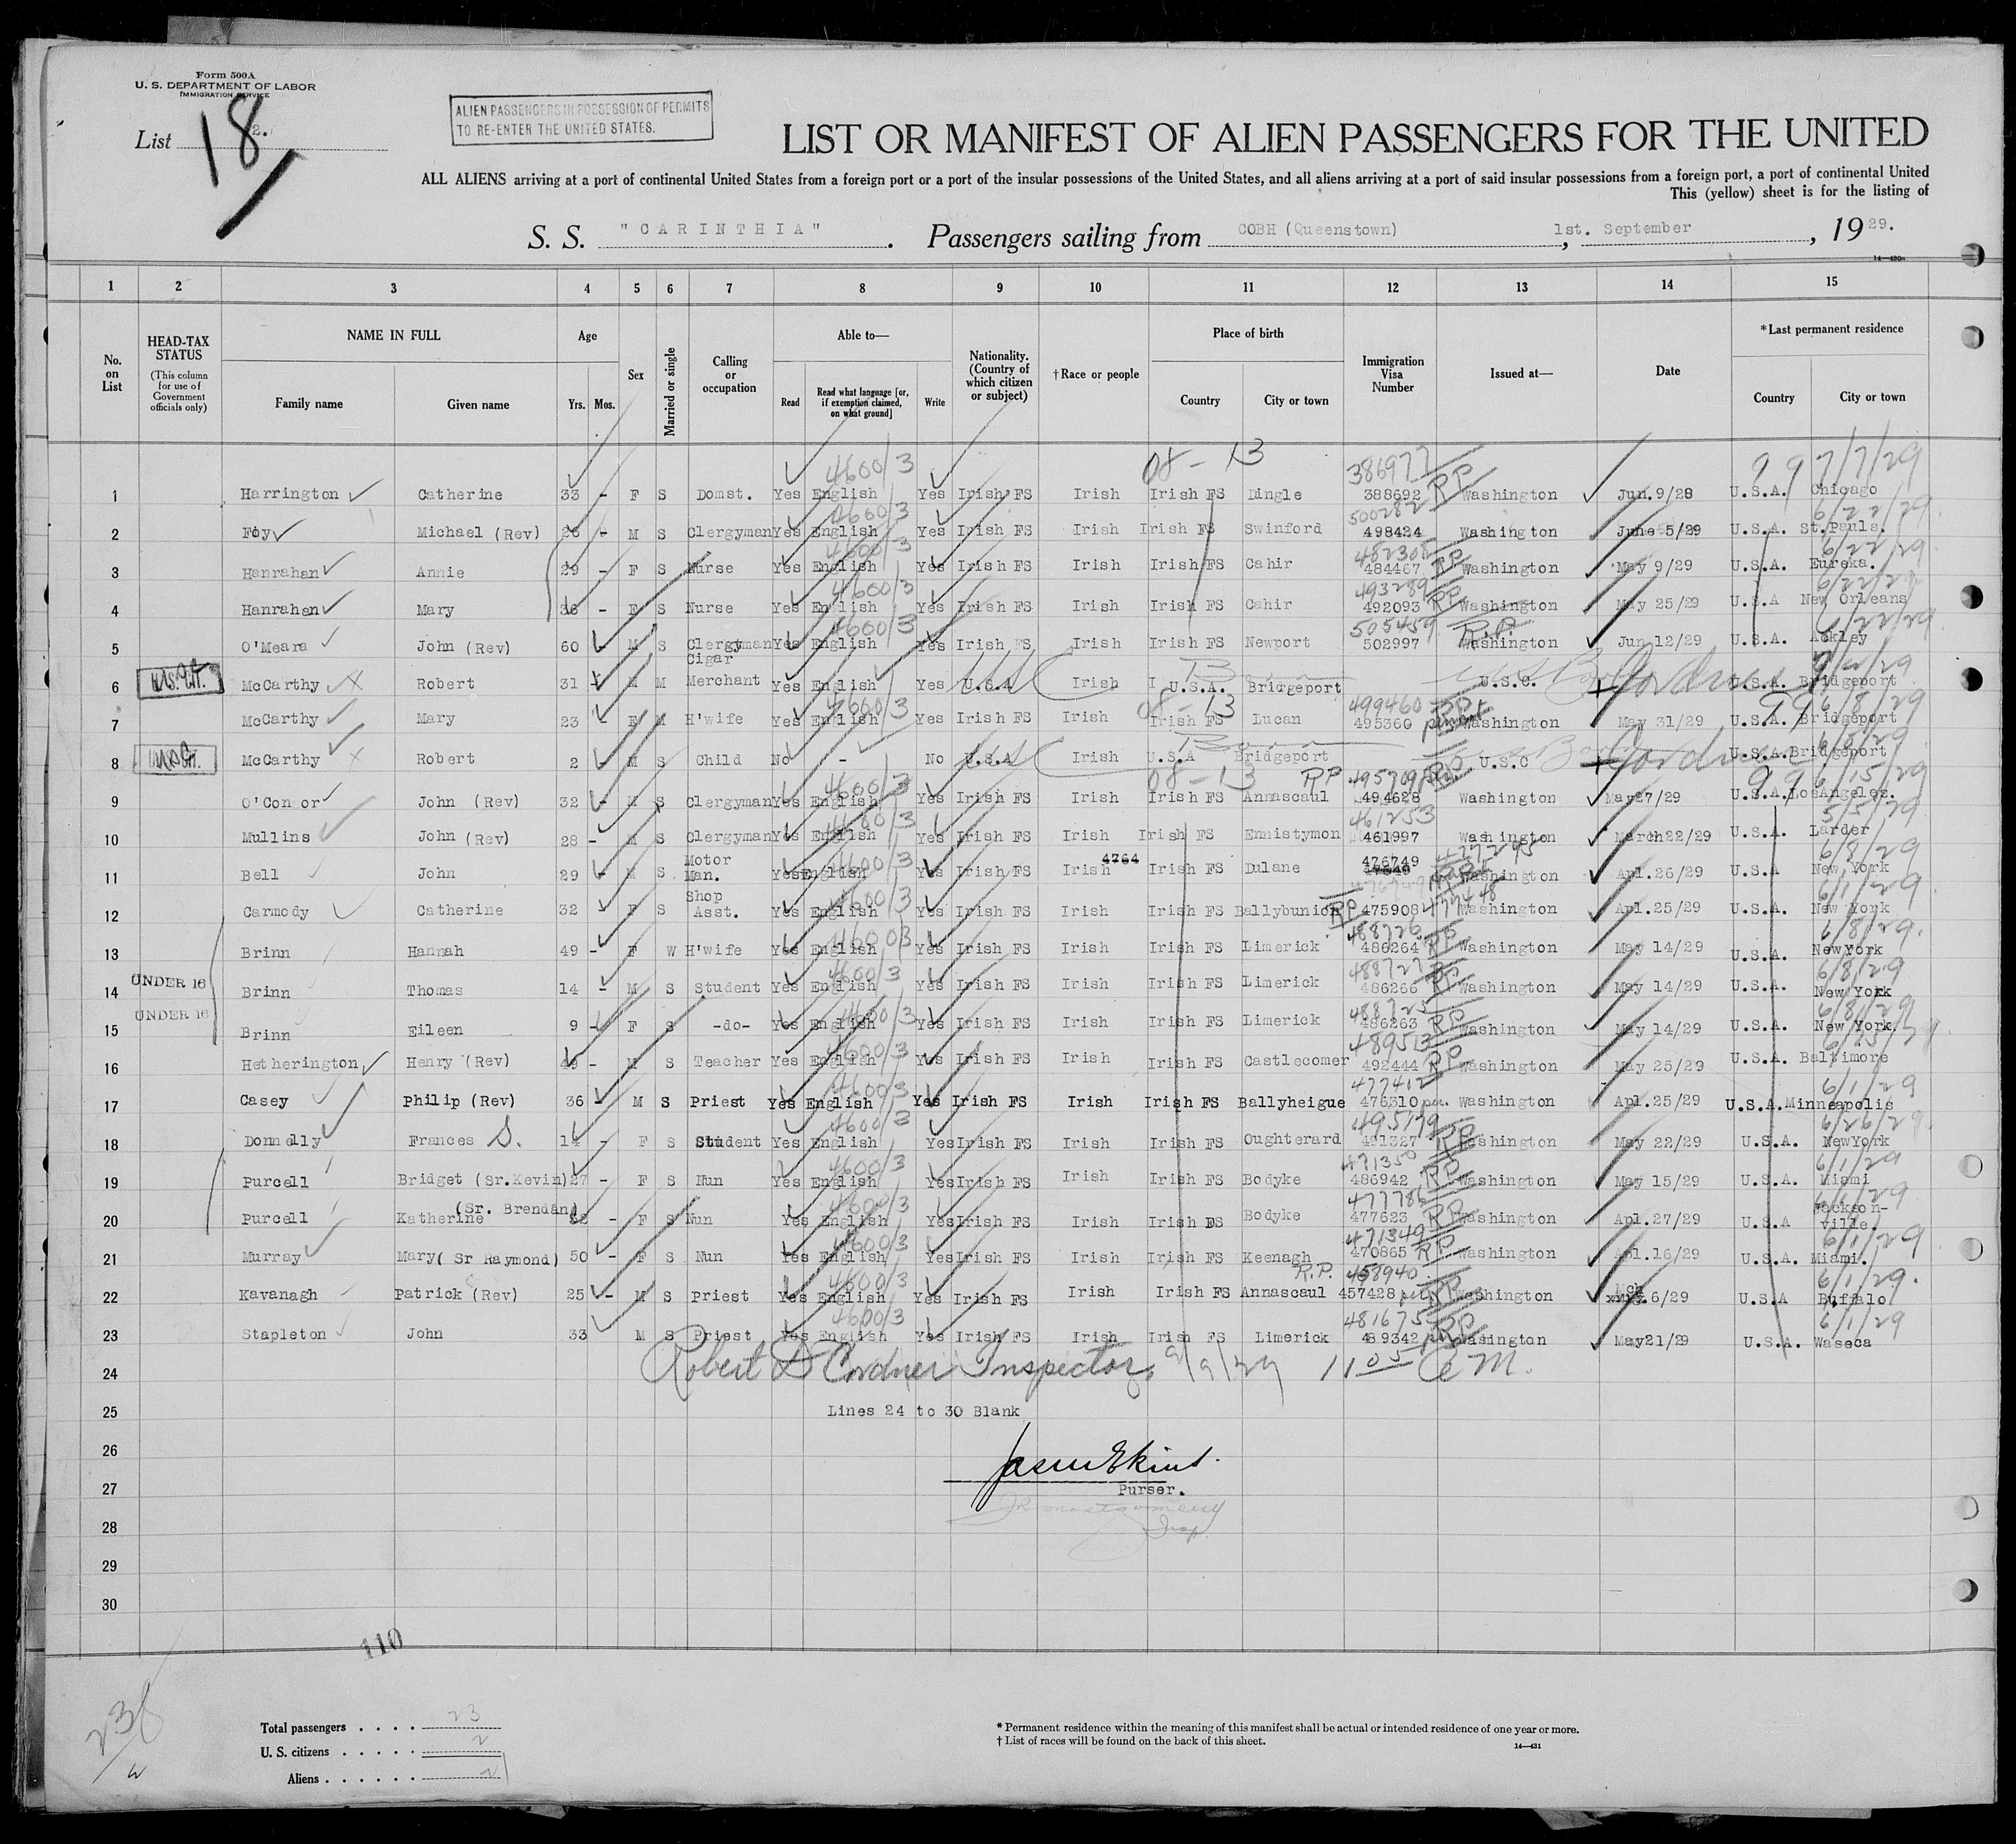 Form 500A
U. S. DEPARTMENT OF LABOR
IMMIGRATION SERVICE
List 18
ALIEN PASSENGERS IN POSSESSION OF PERMITS
TO RE-ENTER THE UNITED STATES.
LIST OR MANIFEST OF ALIEN PASSENGERS FOR THE UNITED
ALL ALIENS arriving at a port of continental United States from a foreign port or a port of the insular possessions of the United States, and all aliens arriving at a port of said insular possessions from a foreign port, a port of continental United
This (yellow) sheet is for the listing of
S. S. "CARINTHIA" . Passengers sailing from COBH (Queenstown) , 1st. September , 19 29.
1 2 3 4 5 6 7 8 9 10 11 12 13 14 15
No. on List HEAD-TAX STATUS (This column for use of Government officials only) NAME IN FULL Family name Given name Age Yrs. Mos. Sex Married or single Calling or occupation Able to— Read Read what language [or, if exemption claimed, on what ground] Write Nationality. (Country of which citizen or subject) †Race or people Place of birth Country City or town Immigration Visa Number Issued at— Date *Last permanent residence Country City or town
08-13 386977 9 9 7/7/29
1 Harrington Catherine 33 - F S Domst. Yes English 4600/3 Yes Irish FS Irish Irish FS Dingle 388692 RP Washington Jun.9/28 U.S.A. Chicago
2 Foy Michael (Rev) - M S Clergyman Yes English Yes Irish FS Irish Irish FS Swinford 500282 498424 Washington June 5/29 U.S.A. St.Pauls. 6/22/29
3 Hanrahan Annie 29 - F S Nurse Yes English 4600/3 Yes Irish FS Irish Irish FS Cahir 484467 RP Washington May 9/29 U.S.A. Eureka. 6/22/29
4 Hanrahan Mary 36 - F S Nurse Yes English 4600/3 Yes Irish FS Irish Irish FS Cahir 493289 492093 RP Washington May 25/29 U.S.A New Orleans
5 O'Meara John (Rev) 60 M S Clergyman Yes English 4600/3 Yes Irish FS Irish Irish FS Newport 505459 502997 R.P. Washington Jun.12/29 U.S.A. Ackley 6/22/29
6 McCarthy Robert 31 - M M Cigar Merchant Yes English Yes U.S.A Irish U.S.A. Bridgeport U.S.C. U.S.A. Bridgeport
7 McCarthy Mary 23 - F M H'wife Yes English 4600/3 Yes Irish FS Irish 08-13 Irish FS Lucan 499460 495360 Washington May 31/29 U.S.A. Bridgeport 6/8/29
8 McCarthy Robert 2 - M S Child No - No U.S.A Irish U.S.A Bridgeport U.S.C U.S.A. Bridgeport 6/8/29
9 O'Conor John (Rev) 32 - M S Clergyman Yes English 4600/3 Yes Irish FS Irish 08-13 Irish FS Annascaul RP 495709 494628 Washington May27/29 U.S.A. LosAngeles. 6/15/29
10 Mullins John (Rev) 28 - M S Clergyman Yes English Yes Irish FS Irish Irish FS Ennistymon 461253 461997 Washington March22/29 U.S.A. Larder 5/5/29
11 Bell John 29 - M S Motor Man. Yes English 4600/3 Yes Irish FS Irish 4764 Irish FS Dulane 476749 Washington Apl.26/29 U.S.A New York 6/8/29
12 Carmody Catherine 32 - F S Shop Asst. Yes English 4600/3 Yes Irish FS Irish Irish FS Ballybunion RP 475908 477448 Washington Apl.25/29 U.S.A. New York 6/1/29
13 Brinn Hannah 49 - F W H'wife Yes English 4600/3 Yes Irish FS Irish Irish FS Limerick 488726 486264 RP Washington May 14/29 U.S.A. NewYork 6/8/29.
14 UNDER 16 Brinn Thomas 14 - M S Student Yes English 4600/3 Yes Irish FS Irish Irish FS Limerick 488727 486266 RP Washington May 14/29 U.S.A. New York 6/8/29
15 UNDER 16 Brinn Eileen 9 - F S -do- Yes English 4600/3 Yes Irish FS Irish Irish FS Limerick 488725 486263 RP Washington May 14/29 U.S.A. New York. 6/8/29
16 Hetherington Henry (Rev) 49 - M S Teacher Yes English 4600/3 Yes Irish FS Irish Irish FS Castlecomer 489513 492444 RP Washington May 25/29 U.S.A. Baltimore
17 Casey Philip (Rev) 36 - M S Priest Yes English 4600/3 Yes Irish FS Irish Irish FS Ballyheigue 477412 476310 Washington Apl.25/29 U.S.A. Minneapolis 6/1/29
18 Donnelly Frances S. 14 - F S Student Yes English 4600/3 Yes Irish FS Irish Irish FS Oughterard 495179 491327 RP Washington May 22/29 U.S.A. NewYork
19 Purcell Bridget (Sr.Kevin) 27 - F S Nun Yes English 4600/3 Yes Irish FS Irish Irish FS Bodyke 471350 486942 RP Washington May 15/29 U.S.A. Miami 6/1/29
20 Purcell Katherine (Sr. Brendan) - F S Nun Yes English 4600/3 Yes Irish FS Irish Irish FS Bodyke 477786 477623 RP Washington Apl.27/29 U.S.A Jacksonville
21 Murray Mary (Sr Raymond) 50 - F S Nun Yes English 4600/3 Yes Irish FS Irish Irish FS Keenagh 471349 470865 RP Washington Apl.16/29 U.S.A. Miami. 6/1/29
22 Kavanagh Patrick (Rev) 25 - M S Priest Yes English 4600/3 Yes Irish FS Irish Irish FS Annascaul R.P. 458940 457428 Washington 6/29 U.S.A Buffalo 6/1/29.
23 Stapleton John 33 M S Priest Yes English 4600/3 Yes Irish FS Irish Irish FS Limerick 481675 489342 RP Wasington May21/29 U.S.A. Waseca 6/1/29
24 Robert D Cordner Inspector, 9/9/29 11 05 am.
25 Lines 24 to 30 Blank
26
27 Purser.
28 Insp.
29
30
110
Total passengers . . . . 23
U. S. citizens . . . . . 2
Aliens . . . . . . 21
* Permanent residence within the meaning of this manifest shall be actual or intended residence of one year or more.
† List of races will be found on the back of this sheet.
14—431